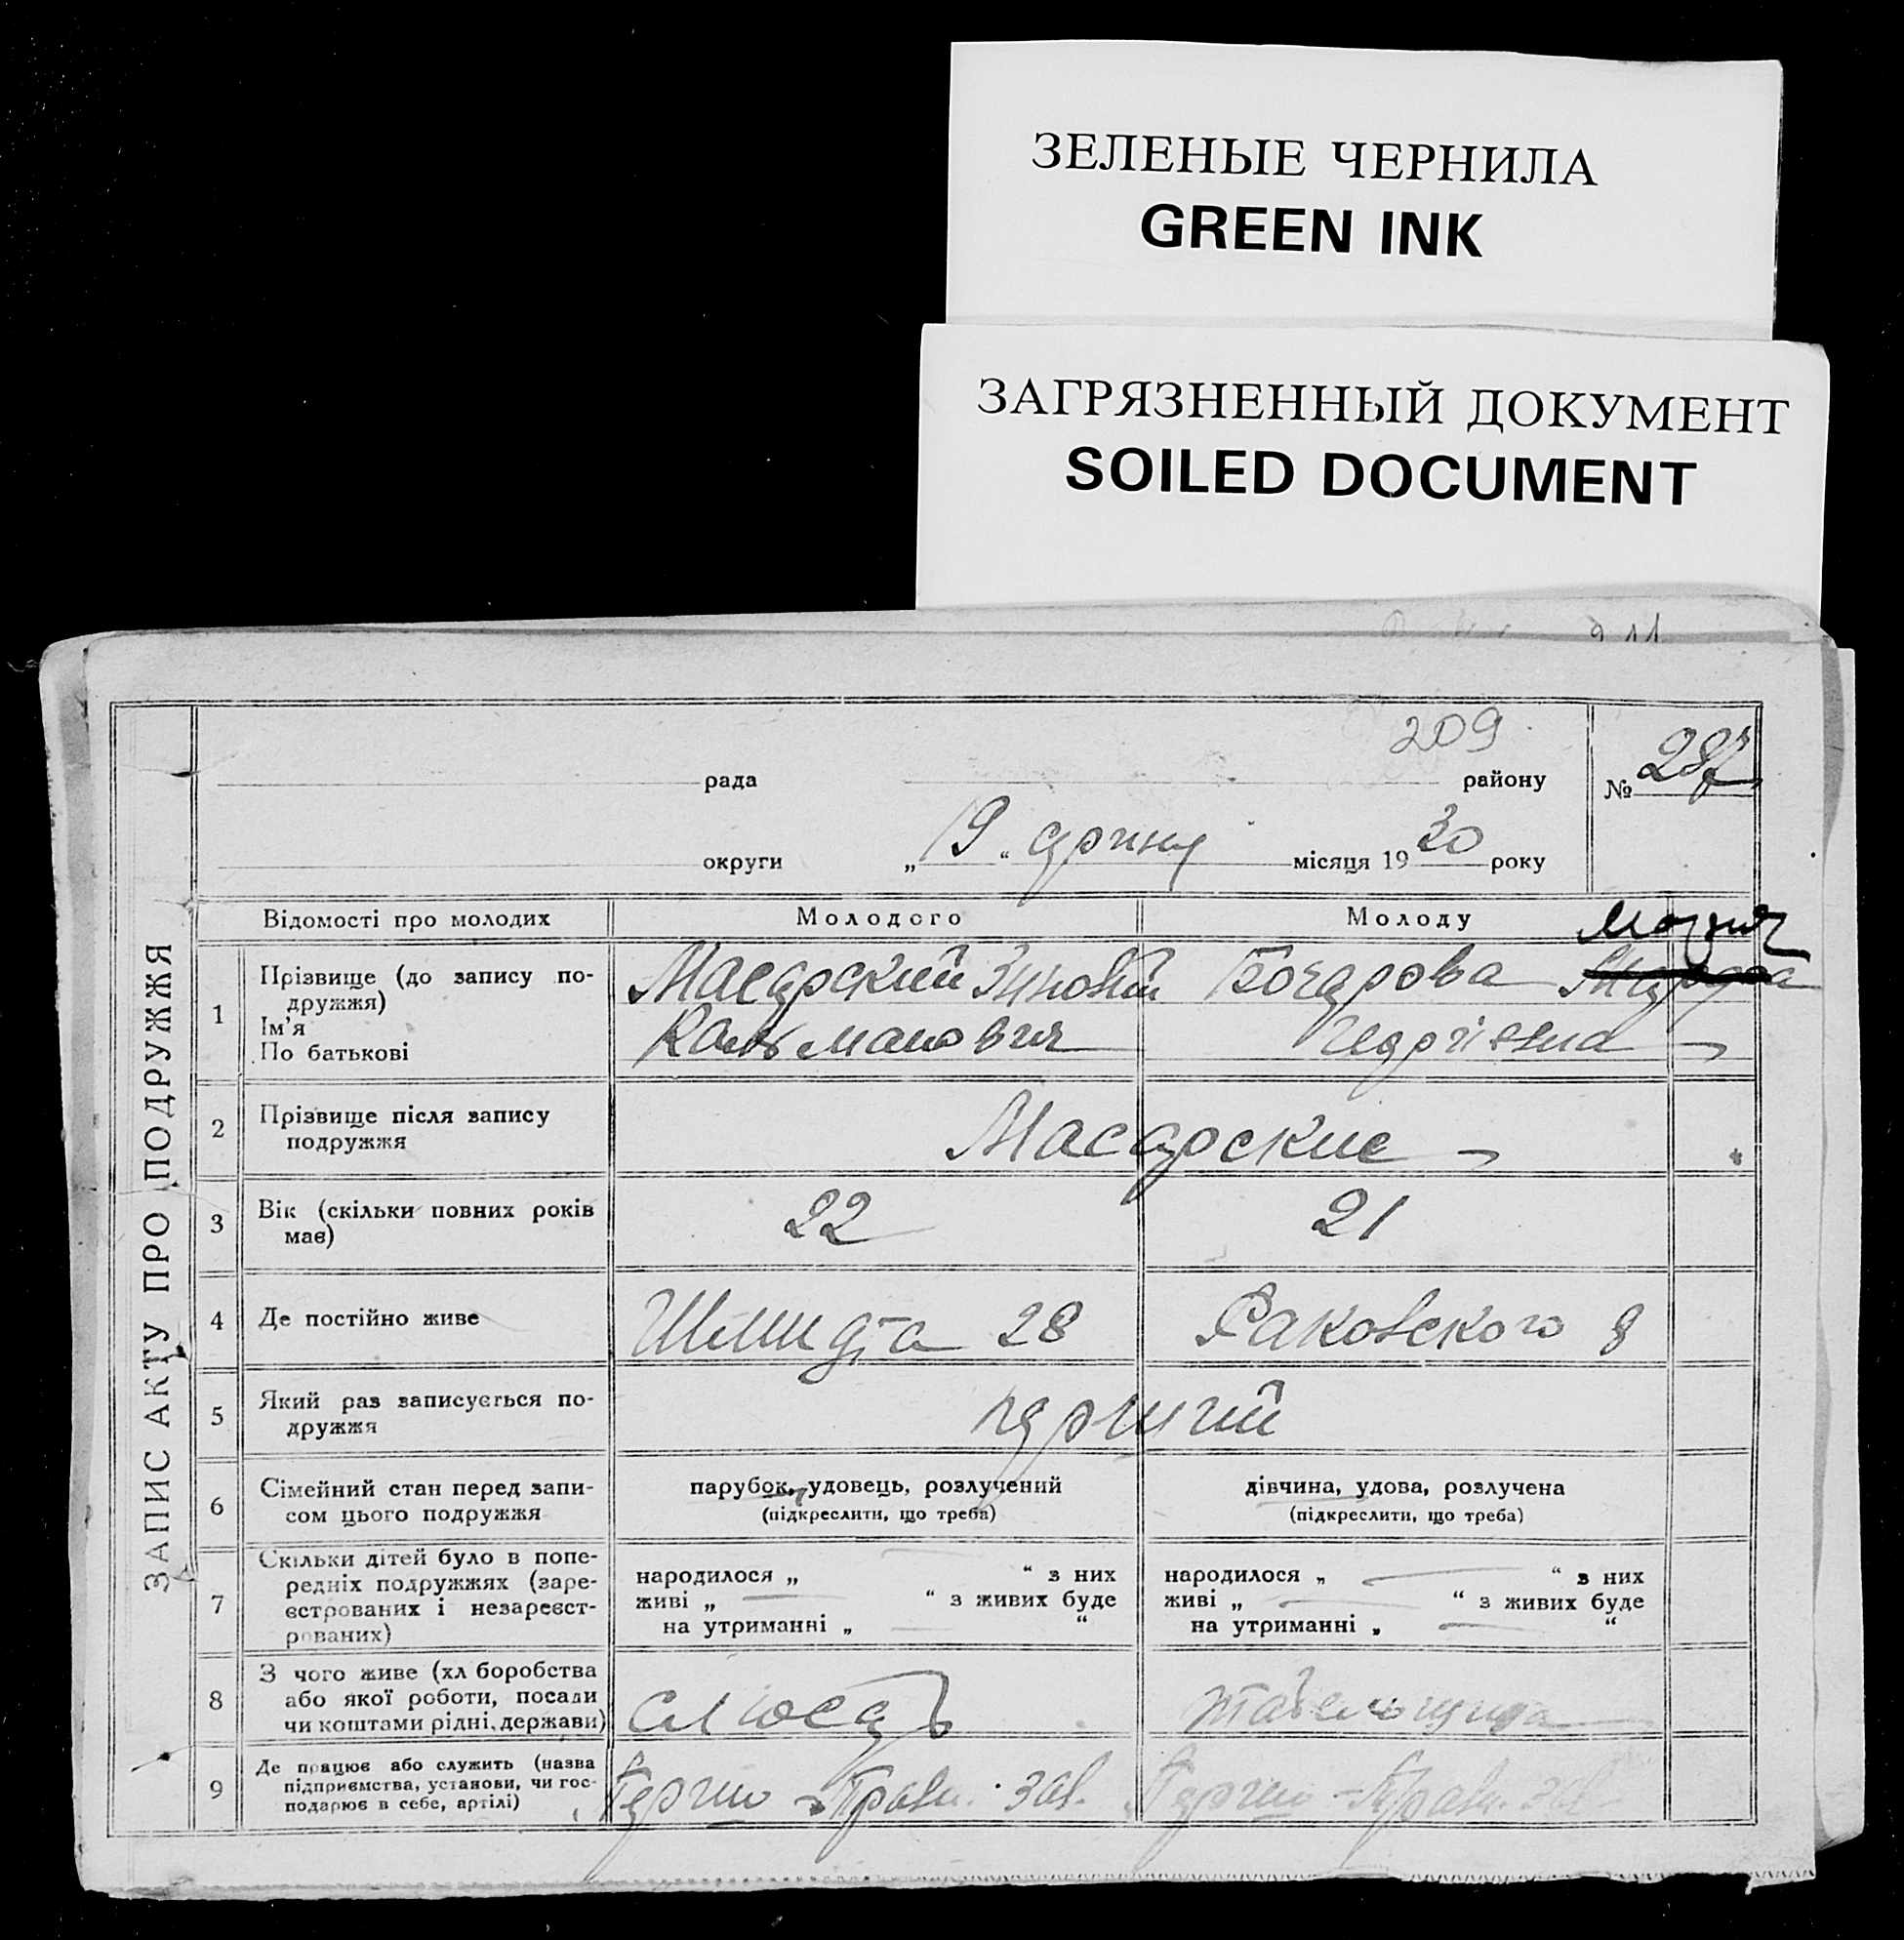 ЗЕЛЕНЫЕ ЧЕРНИЛА
GREEN INK
ЗАГРЯЗНЕННЫЙ ДОКУМЕНТ
SOILED DOCUMENT
ЗАПИС АКТУ ПРО ПОДРУЖЖЯ
209
рада району № 287
округи „19“ місяця 1930 року
Відомості про молодих Молодого Молоду
1 Прізвище (до запису по-
дружжя)
Ім'я
По батькові
Зиновій Бочарова
Кальманович
2 Прізвище після запису
подружжя
3 Вік (скільки повних років
має)
22 21
4 Де постійно живе Шмидта 28 Раковского 8
5 Який раз записується по-
дружжя
перший
6 Сімейний стан перед запи-
сом цього подружжя
парубок, удовець, розлучений
(підкреслити, що треба)
дівчина, удова, розлучена
(підкреслити, що треба)
7 Скільки дітей було в попе-
редніх подружжях (заре-
єстрованих і незареєст-
рованих)
народилося „ “ з них
живі „ “ з живих буде
на утриманні „ “
народилося „ “ з них
живі „ “ з живих буде
на утриманні „ “
8 З чого живе (хл боробства
або якої роботи, посади
чи коштами рідні, держави)
слюсар
9 Де працює або служить (назва
підприємства, установи, чи гос-
подарює в себе, артілі)
зав. зав.